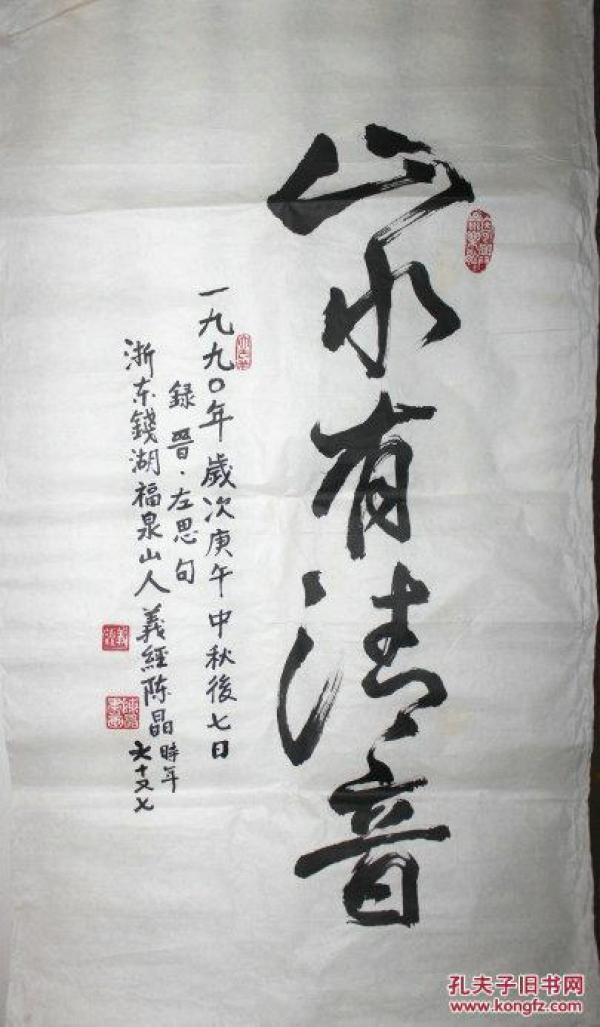 山水有清音
一九九〇年歲次庚午中秋後七日
録晉·左思句
浙东錢湖福泉山人義經陈晶時年
六十又七
孔夫子旧书网
www.kongfz.com